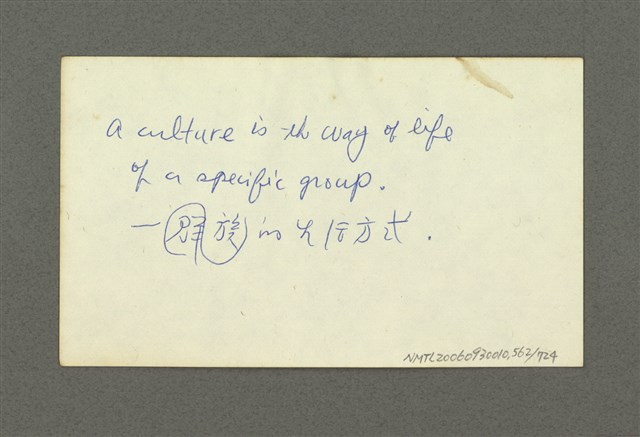 A culture is th way of life
of a specific group.
一群族的生活方式.
NMTL20060930010,562/724